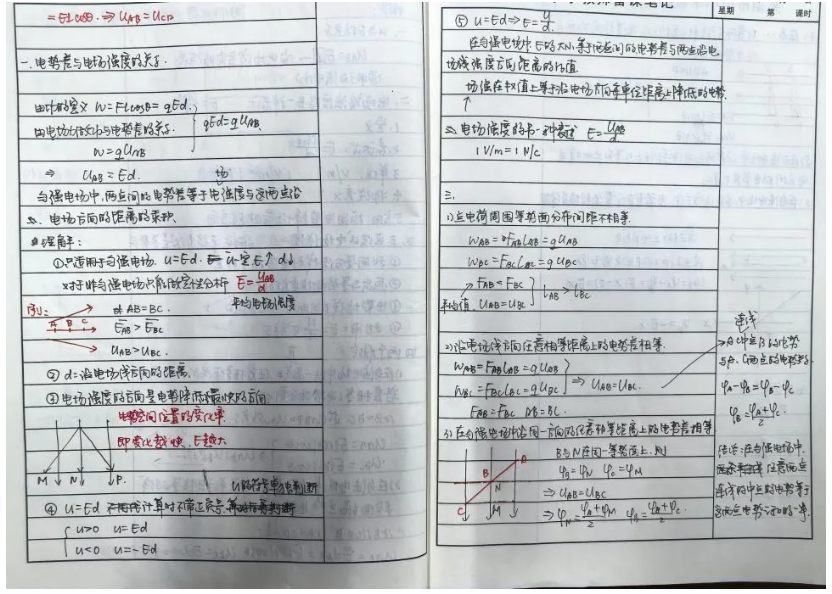 = El cosθ. ⇒ UAB = UCD
一、电势差与电场强度的关系.
由功的定义 W = Flcosθ = qEd.
由电场力做功与电势差的关系.
W = qUAB
qEd = qUAB
⇒ UAB = Ed.
匀强电场中,两点间的电势差等于电场强度与这两点沿
电场方向的距离的乘积.
理解:
①只适用于匀强电场. U=Ed. U一定 E↑ d↓
对于非匀强电场只能做定性分析 E = UAB/d
平均电场强度
例:
A B C
AB = BC.
EAB > EBC
UAB > UBC.
② d: 沿电场线方向的距离.
③ 电场强度的方向是电势降落最快的方向
电势随空间位置的变化率
即变化越快, E越大
M N P.
U的符号单独判断
④ U=Ed
U>0 U=Ed
U<0 U=-Ed
星期 第 课时
⑤ U=Ed ⇒ E = U/d.
在匀强电场中 E的大小等于两点间的电势差与两点沿电
场强度方向距离的比值.
场强在数值上等于沿电场方向每单位距离上降低的电势.
二、电场强度的另一种表述 E = UAB/d
1 V/m = 1 N/C
三.
1) 点电荷周围等势面分布间距不相等.
WAB = FAB LAB = qUAB
WBC = FBC LBC = qUBC
FAB < FBC
UAB = UBC
LAB > LBC
平均值.
2) 沿电场线方向任意相等距离上的电势差相等.
WAB = FAB LAB = qUAB
WBC = FBC LBC = qUBC
FAB = FBC AB = BC.
⇒ UAB = UBC.
连线
AC中点B的电势
与A、C两点的电势差.
φA - φB = φB - φC
φB = (φA + φC)/2
3) 在匀强电场中沿同一方向的任意相等距离上的电势差相等
A
B
N
C
M
B与N在同一等势面上, 则
φB = φN φC = φM
⇒ UAB = UBC
⇒ φN = (φA + φM)/2 φB = (φA + φC)/2
结论: 在匀强电场中,
任意两点
连线的中点的电势等于
这两点电势之和的一半.